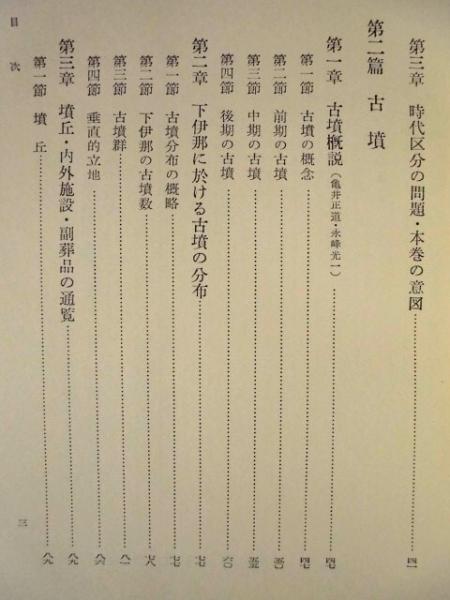 第三章 時代区分の問題・本巻の意図……四一
第二篇 古墳
第一章 古墳概説(亀井正道・永峰光一)……四七
第一節 古墳の概念……四七
第二節 前期の古墳……五〇
第三節 中期の古墳……五五
第四節 後期の古墳……六〇
第二章 下伊那に於ける古墳の分布……七七
第一節 古墳分布の概略……七七
第二節 下伊那の古墳数……七八
第三節 古墳群……八一
第四節 垂直的立地……八六
第三章 墳丘・内外施設・副葬品の通覧……八九
第一節 墳丘……八九
目次
三